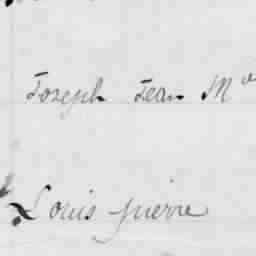 Joseph Jean Mie
Louis pierre